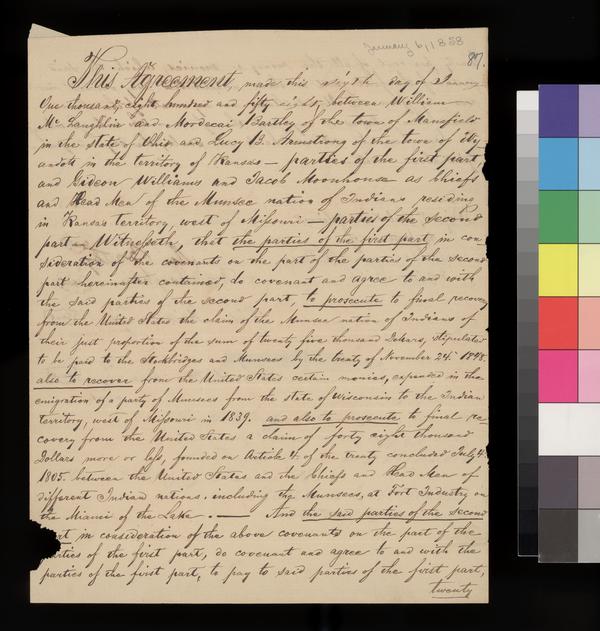 January 6, 1858
87.
This Agreement, made this sixth day of January
One thousand eight hundred and fifty eight, between William
Mc Laughlin and Mordecai Bartley of the town of Mansfield
in the state of Ohio and Lucy B. Armstrong of the town of Wy-
andott in the territory of Kansas — parties of the first part
and Gideon Williams and Jacob Moonhouse as Chiefs
and Head Men of the Munsee nation of Indians, residing
in Kansas territory, west of Missouri — parties of the second
part — Witnesseth, that the parties of the first part, in con
sideration of the covenants on the part of the parties of the second
part hereinafter contained, do covenant and agree to and with
the said parties of the second part, to prosecute to final recovery
from the United States the claim of the Munsee nation of Indians of
their just proportion of the sum of twenty five thousand Dollars, stipulated
to be paid to the Stockbridges and Munsees by the treaty of November 24. 1848.
also to recover from the United States certain monies, expended in the
emigration of a party of Munsees from the state of Wisconsin to the Indian
territory, west of Missouri in 1839. and also to prosecute to final re-
covery from the United States a claim of forty eight thousand
Dollars more or less, founded on Article 4. of the treaty concluded July 4.
1805. between the United States and the Chiefs and Head Men of
different Indian nations, including the Munsees, at Fort Industry on
the Miami of the Lake. — And the said parties of the second
part in consideration of the above covenants on the part of the
parties of the first part, do covenant and agree to and with the
parties of the first part, to pay to said parties of the first part,
twenty